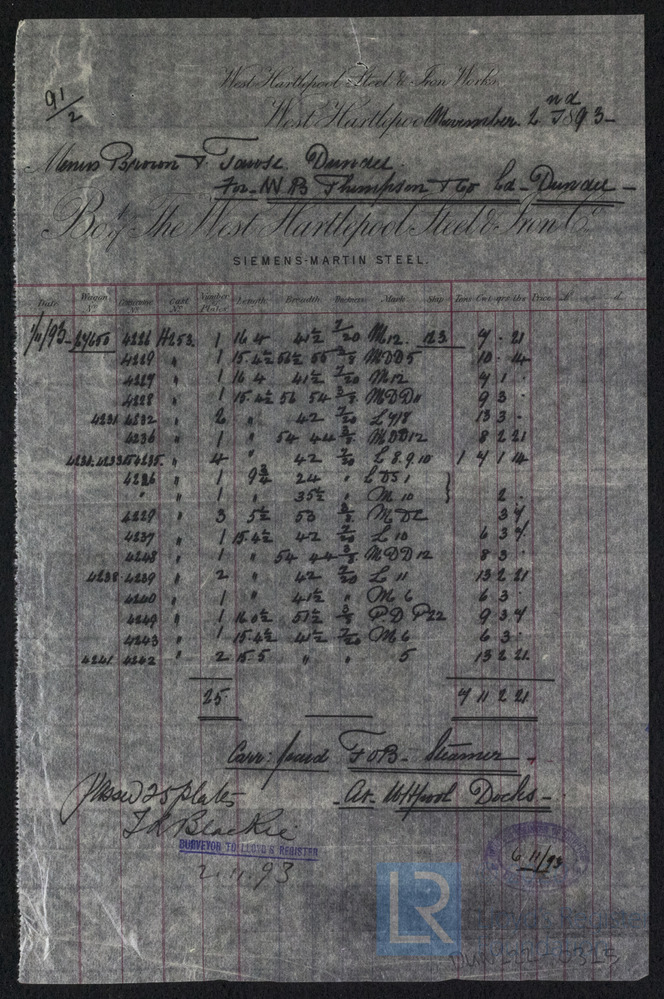 91/2
West Hartlepool Steel & Iron Works,
West Hartlepool November 2nd 1893-
Messrs Brown & Tawse. Dundee.
For- W B Thompson & Co Ld- Dundee -
Bot. of The West Hartlepool Steel & Iron Co.
SIEMENS-MARTIN STEEL.
Date Wagon No. Cast No. Number of Plates Length Breadth Thickness Mark Ship Tons Cwt. qrs. lbs Price £ s. d.
1/11/93- 4226 1 16 4 41½ 7/20 M12. 123
4229 " 1 15.4½ 3/8 MDD5 10 14
4227 " 1 16 4 41½ 7/20 M12
4228 " 1 15.4½ 56 54 3/8 MDD11 9 3 -
4231 4232 " 2 " 42 7/20 13 3 -
4236 " 1 " 54 44 3/8 MDD12 8 2 21
" 4 " 42 7/20 L 8.9.10 1 7 1 14
" 1 9¾ 24 " L DS 1
" " 1 " 35½ " M 10 2
4229 " 3 5½ 53 3/8 3 7
4237 " 1 15.4½ 42 7/20 L 10 6 3 7
4248 " 1 " 54 44 3/8 MDD 12 8 3 -
4238 4239 " 2 " 42 7/20 L 11 13 2 21
4240 " 1 " 41½ " M 6 6 3 -
4249 " 1 16 0½ 51½ 3/8 P.D P22 9 3 7
4243 " 1 15.4½ 41½ 7/20 M 6 6 3 -
4241 4242 " 2 15.5 " " 5 13 2 21
25 7 11 2 21
Carr: paid F O B- Steamer
At W Hpool Docks-
Passed 25 plates
Blackie
SURVEYOR TO LLOYD'S REGISTER
2.11.93
6/11/93
LR
DUN222-0315